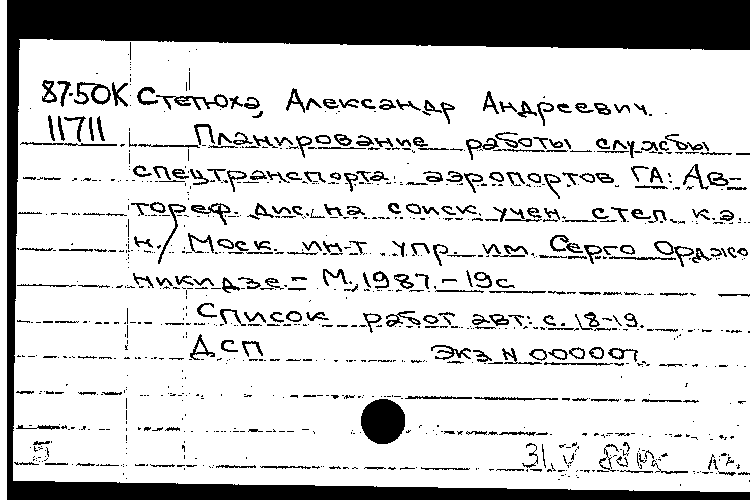 87-50К Стетюха, Александр Андреевич.
11711 Планирование работы службы
спецтранспорта аэропортов ГА: Ав-
тореф. дис. на соиск. учен. степ. к.э.
н./ Моск. ин-т упр. им. Серго Орджо
никидзе - М., 1987. - 19с
Список работ авт.: с. 18-19.
ДСП Экз N 000007.
5 31.V 88